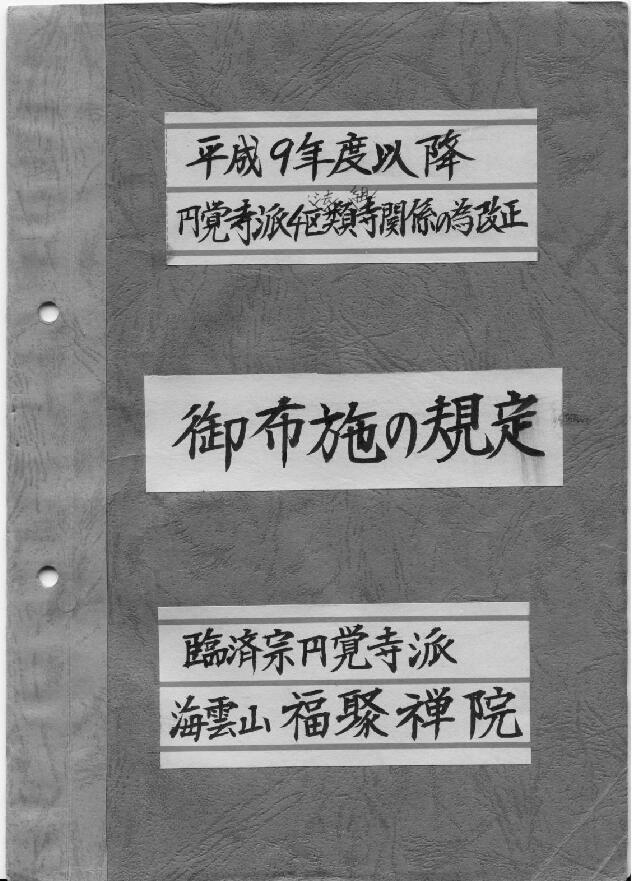 平成9年度以降
法 組
円覚寺派4区類寺関係の為改正
御布施の規定
臨済宗円覚寺派
海雲山 福聚禅院